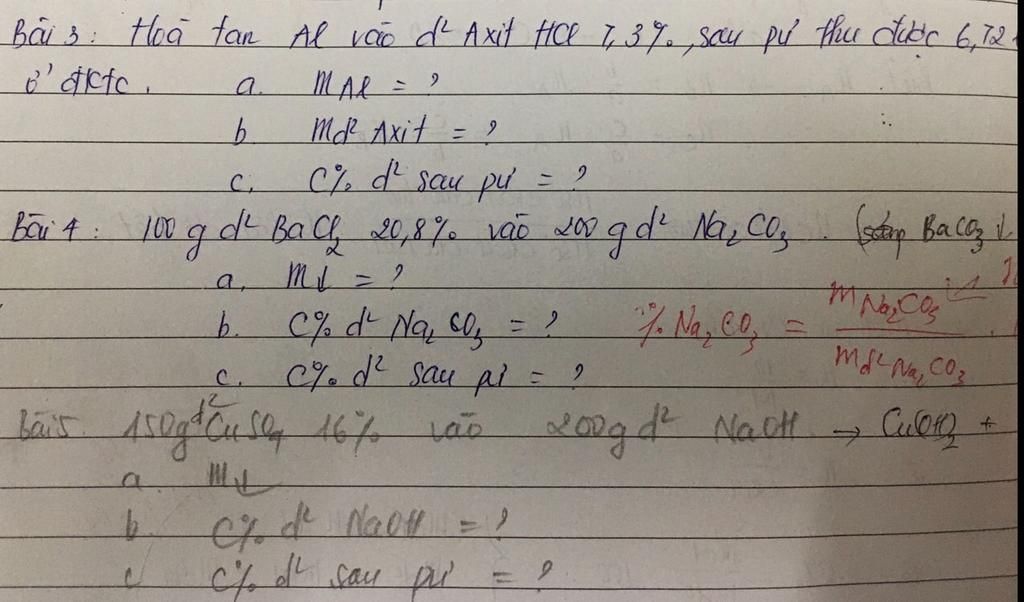 Bài 3: Hoà tan Al vào d² Axit HCl 7,3%, sau pứ thu được 6,72
ở đktc. a. mAl = ?
b. md² Axit = ?
c. C% d² sau pứ = ?
Bài 4: 100g d² BaCl₂ 20,8% vào 200g d² Na₂CO₃. BaCO₃↓
a. m↓ = ?
b. C% d² Na₂CO₃ = ? % Na₂CO₃ = mNa₂CO₃ / md² Na₂CO₃
c. C% d² sau pứ = ?
Bài 5. 150g d² CuSO₄ 16% vào 200g d² NaOH → Cu(OH)₂ +
a. m↓
b. C% d² NaOH = ?
c C% d² sau pứ = ?